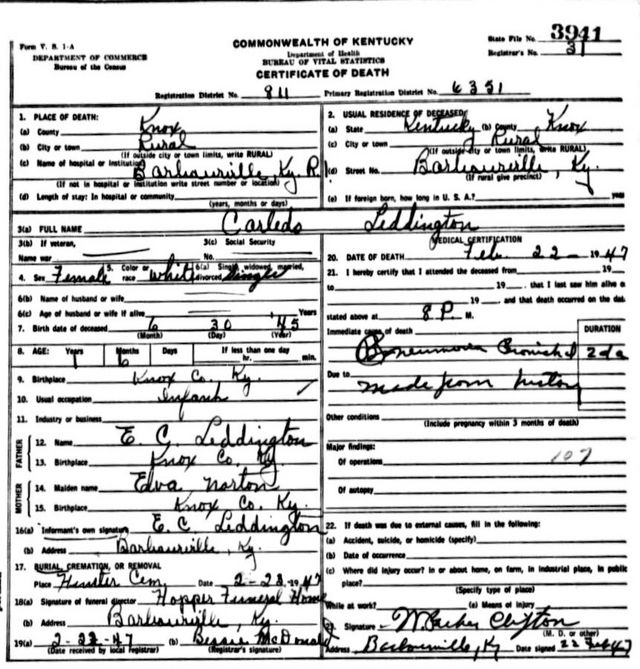 Form V. S. 1-A
DEPARTMENT OF COMMERCE
Bureau of the Census
COMMONWEALTH OF KENTUCKY
Department of Health
BUREAU OF VITAL STATISTICS
CERTIFICATE OF DEATH
State File No. 3941
Registrar's No. 31
Registration District No. 811 Primary Registration District No. 6351
1. PLACE OF DEATH:
(a) County Knox
(b) City or town Rural
(If outside city or town limits, write RURAL)
(c) Name of hospital or institution Barbourville, Ky. R
(If not in hospital or institution write street number or location)
(d) Length of stay: In hospital or community
(years, months or days)
2. USUAL RESIDENCE OF DECEASED:
(a) State Kentucky (b) County Knox
(c) City or town Rural
(If outside city or town limits, write RURAL)
(d) Street No. Barbourville, Ky.
(If rural give precinct)
(e) If foreign born, how long in U. S. A.?
3(a) FULL NAME Carleds Leddington
3(b) If veteran, Name war
3(c) Social Security
4. Sex Female 5. Color or race White 6(a) Single, widowed, married, divorced Single
6(b) Name of husband or wife
6(c) Age of husband or wife if alive Years
7. Birth date of deceased 6 30 45
(Month) (Day) (Year)
8. AGE: Years Months Days If less than one day
1 6 hr. min.
9. Birthplace Knox Co. Ky.
10. Usual occupation Infant
11. Industry or business
FATHER
12. Name E. C. Leddington
13. Birthplace Knox Co. Ky
MOTHER
14. Maiden name Elva Norton
15. Birthplace Knox Co. Ky.
16(a) Informant's own signature E. C. Leddington
(b) Address Barbourville, Ky.
17. BURIAL, CREMATION, OR REMOVAL
Place Cem. Date 2-23-1947
18(a) Signature of funeral director Hopper Funeral Home
(b) Address Barbourville, Ky.
19(a) 2-22-47 (b) Bessie McDonald
(Date received by local registrar) (Registrar's signature)
MEDICAL CERTIFICATION
20. DATE OF DEATH Feb. 22-1947
21. I hereby certify that I attended the deceased from 19
to 19 , that I saw him alive o
19 and that death occurred on the dat
stated above at 8 P. M.
Immediate cause of death DURATION
2 da
Due to made from history
Other conditions
(Include pregnancy within 3 months of death)
Major findings:
Of operations 107
Of autopsy
22. If death was due to external causes, fill in the following:
(a) Accident, suicide, or homicide (specify)
(b) Date of occurrence
(c) Where did injury occur? In or about home, on farm, in industrial place, in public
place?
(Specify type of place)
While at work? (e) Means of injury
Signature W. Parker Clifton
(M. D. or other)
Address Barbourville, Ky Date signed 22 Feb 47